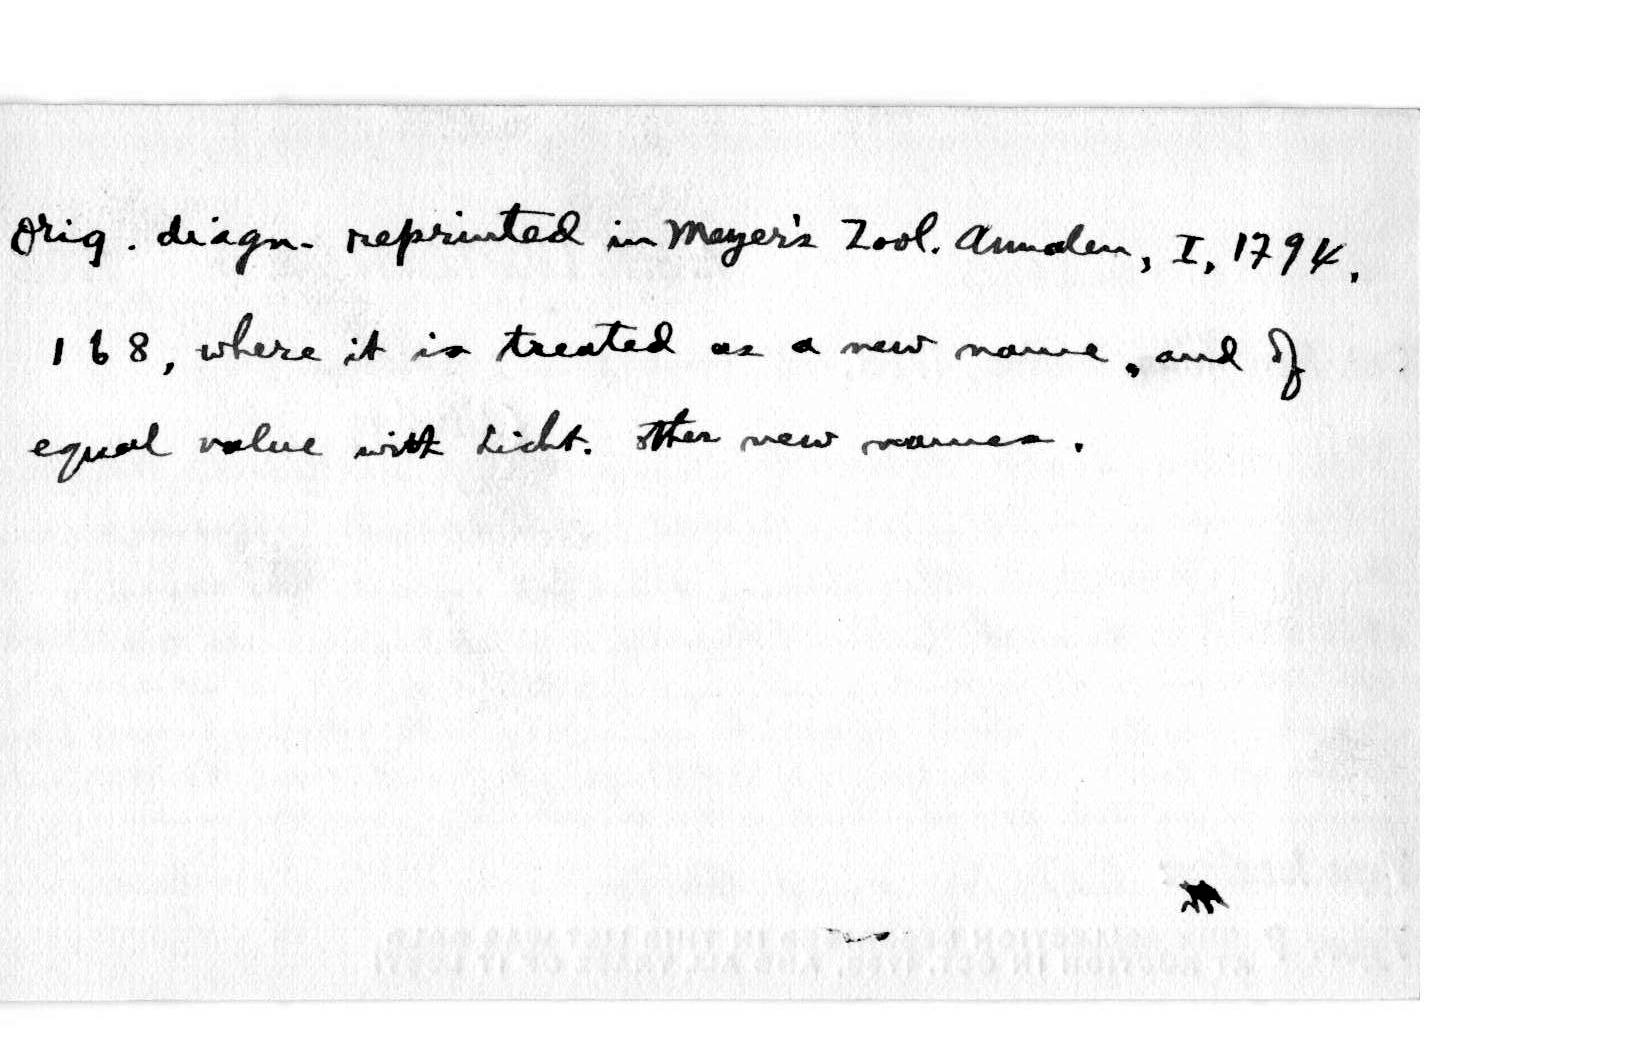 Orig. diagn. reprinted in Meyer's Zool. Annalen, I, 1794,
168, where it is treated as a new name, and of
equal value with Licht. other new names.